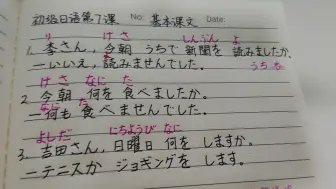 初级日语第7课 No: 基本课文 Date:
り けさ しんぶん よ
1. 李さん、今朝 うちで 新聞を 読みましたか。
ーいいえ、読みませんでした。 うちち
けさ なに た
2. 今朝 何を 食べましたか。
ー何も 食べませんでした。
よしだ にちようび なに
3. 吉田さん、日曜日 何を しますか。
ーテニスか ジョギングを します。